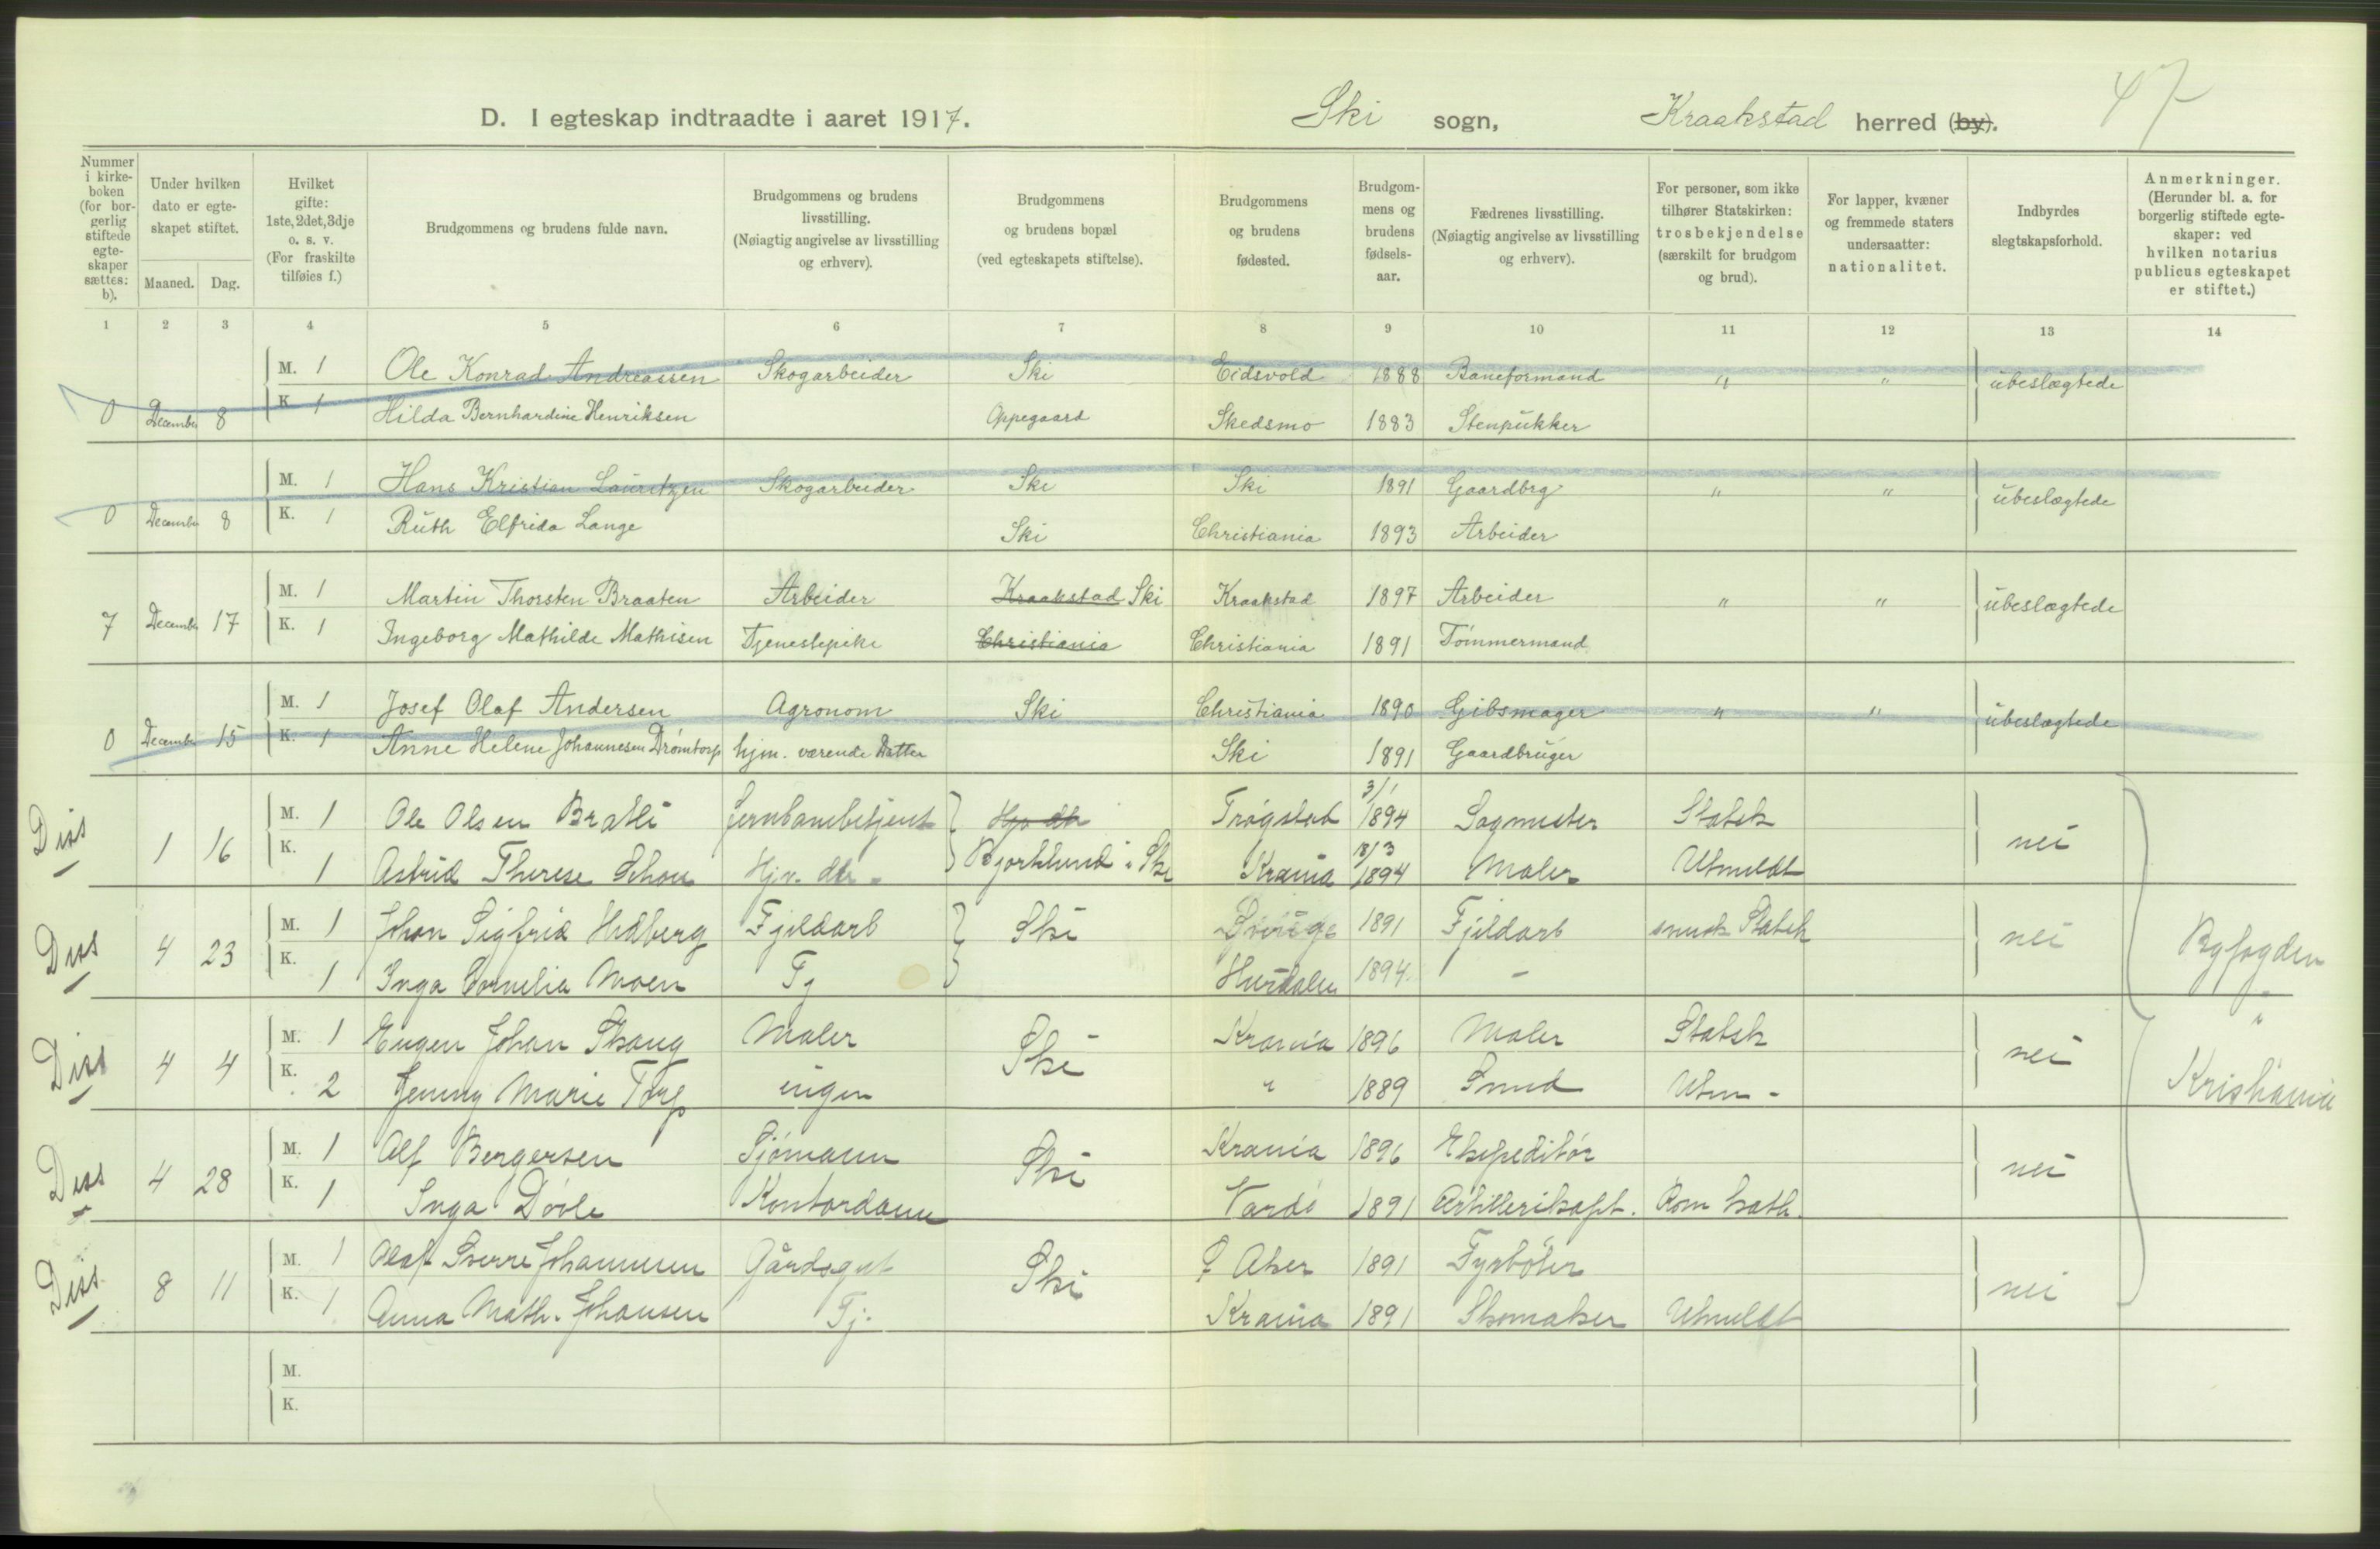 D. I egteskap indtraadte i aaret 1917. Ski sogn, Kraakstad herred (by). 47
Nummer i kirke-boken (for bor-gerlig stiftede egte-skaper sættes: b).
Under hvilken dato er egte-skapet stiftet.
Maaned. Dag.
Hvilket gifte: 1ste, 2det, 3dje o. s. v. (For fraskilte tilføies f.)
Brudgommens og brudens fulde navn.
Brudgommens og brudens livsstilling. (Nøiagtig angivelse av livsstilling og erhverv).
Brudgommens og brudens bopæl (ved egteskapets stiftelse).
Brudgommens og brudens fødested.
Brudgom-mens og brudens fødsels-aar.
Fædrenes livsstilling. (Nøiagtig angivelse av livsstilling og erhverv).
For personer, som ikke tilhører Statskirken: trosbekjendelse (særskilt for brudgom og brud).
For lapper, kvæner og fremmede staters undersaatter: nationalitet.
Indbyrdes slegtskapsforhold.
Anmerkninger. (Herunder bl. a. for borgerlig stiftede egte-skaper: ved hvilken notarius publicus egteskapet er stiftet.)
1 2 3 4 5 6 7 8 9 10 11 12 13 14
M. 1 Ole Konrad Andreassen Skogarbeider Ski Eidsvold 1888 Baneformand " " ubeslægtede
0 December 8 K. 1 Hilda Bernhardine Henriksen Oppegaard Skedsmo 1883 Stenpukker
M. 1 Hans Kristian Lauritzen Skogarbeider Ski Ski 1891 Gaardbrg. " " ubeslægtede
0 December 8 K. 1 Ruth Elfrida Lange Ski Christiania 1893 Arbeider
M. 1 Martin Thorsten Braaten Arbeider Kraakstad Ski Kraakstad 1897 Arbeider " " ubeslægtede
7 December 17 K. 1 Ingeborg Mathilde Mathisen Tjenestepike Christiania Christiania 1891 Tømmermand
M. 1 Josef Olaf Andersen Agronom Ski Christiania 1890 Gibsmager " " ubeslægtede
0 December 15 K. 1 Anne Helene Johannesen Drømtorp hjm. værende Datter Ski 1891 Gaardbruger
Diss 1 16 M. 1 Ole Olsen Bratli Jernbanebetjent Trøgstad 3/1 1894 Sagmester Statsk nei
K. 1 Astrid Therese Schou Hjv. dtr. Bjørklund i Ski Krania 18/3 1894 Maler Utmeldt
Diss 4 23 M. 1 Johan Sigfrid Hedberg Fjeldarb Ski Sverige 1891 Fjeldarb svensk Statsk nei Byfogden
K. 1 Inga Cornelia Moen Tj Hurdalen 1894 -
Diss 4 4 M. 1 Eugen Johan Skaug Maler Ski Krania 1896 Maler Statsk nei "
K. 2 Jenny Marie Torp ingen " 1889 Smed Utm - Kristiania
Diss 4 28 M. 1 Alf Bergersen Sjømann Ski Krania 1896 Ekspeditør nei
K. 1 Inga Døvle Kontordame Vardø 1891 Artillerikapt. Rom kath.
Diss 8 11 M. 1 Olaf Sverre Johannesen Gårdsgut Ski Ø Aker 1891 Fyrbøter nei
K. 1 Anna Math. Johansen Tj. Krania 1891 Skomaker Utmeldt
M.
K.